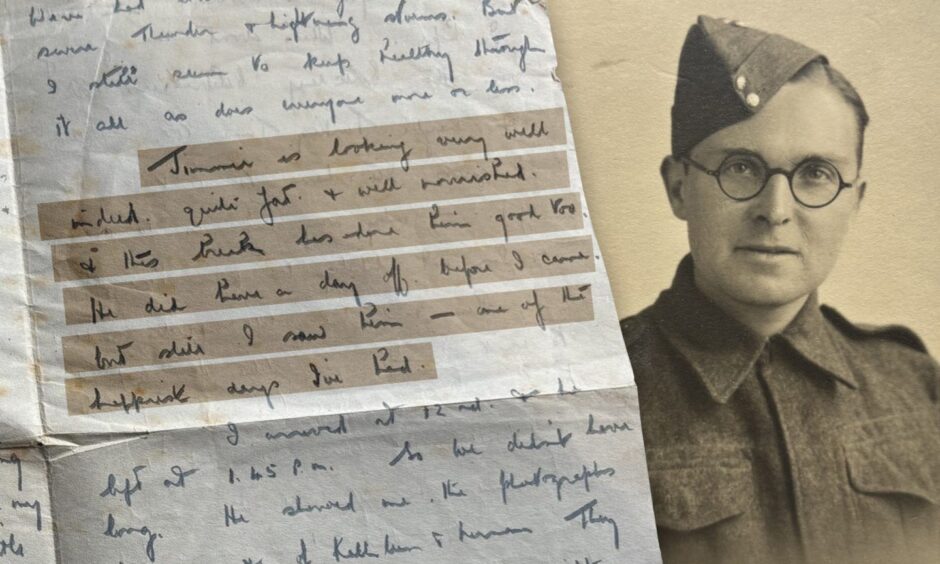 We've had
some Thunder & lightning storms. But
I still seem to keep healthy through
it all as does everyone more or less.
Jimmie is looking very well
indeed. quite fat. & well nourished.
& this break has done him good too.
He did have a day off. before I came.
but still I saw him – one of the
happiest days I've had.
I arrived at 12 noon. & he
left at 1.45 p.m. So we didn't have
long. He showed me the photographs
of & They
my